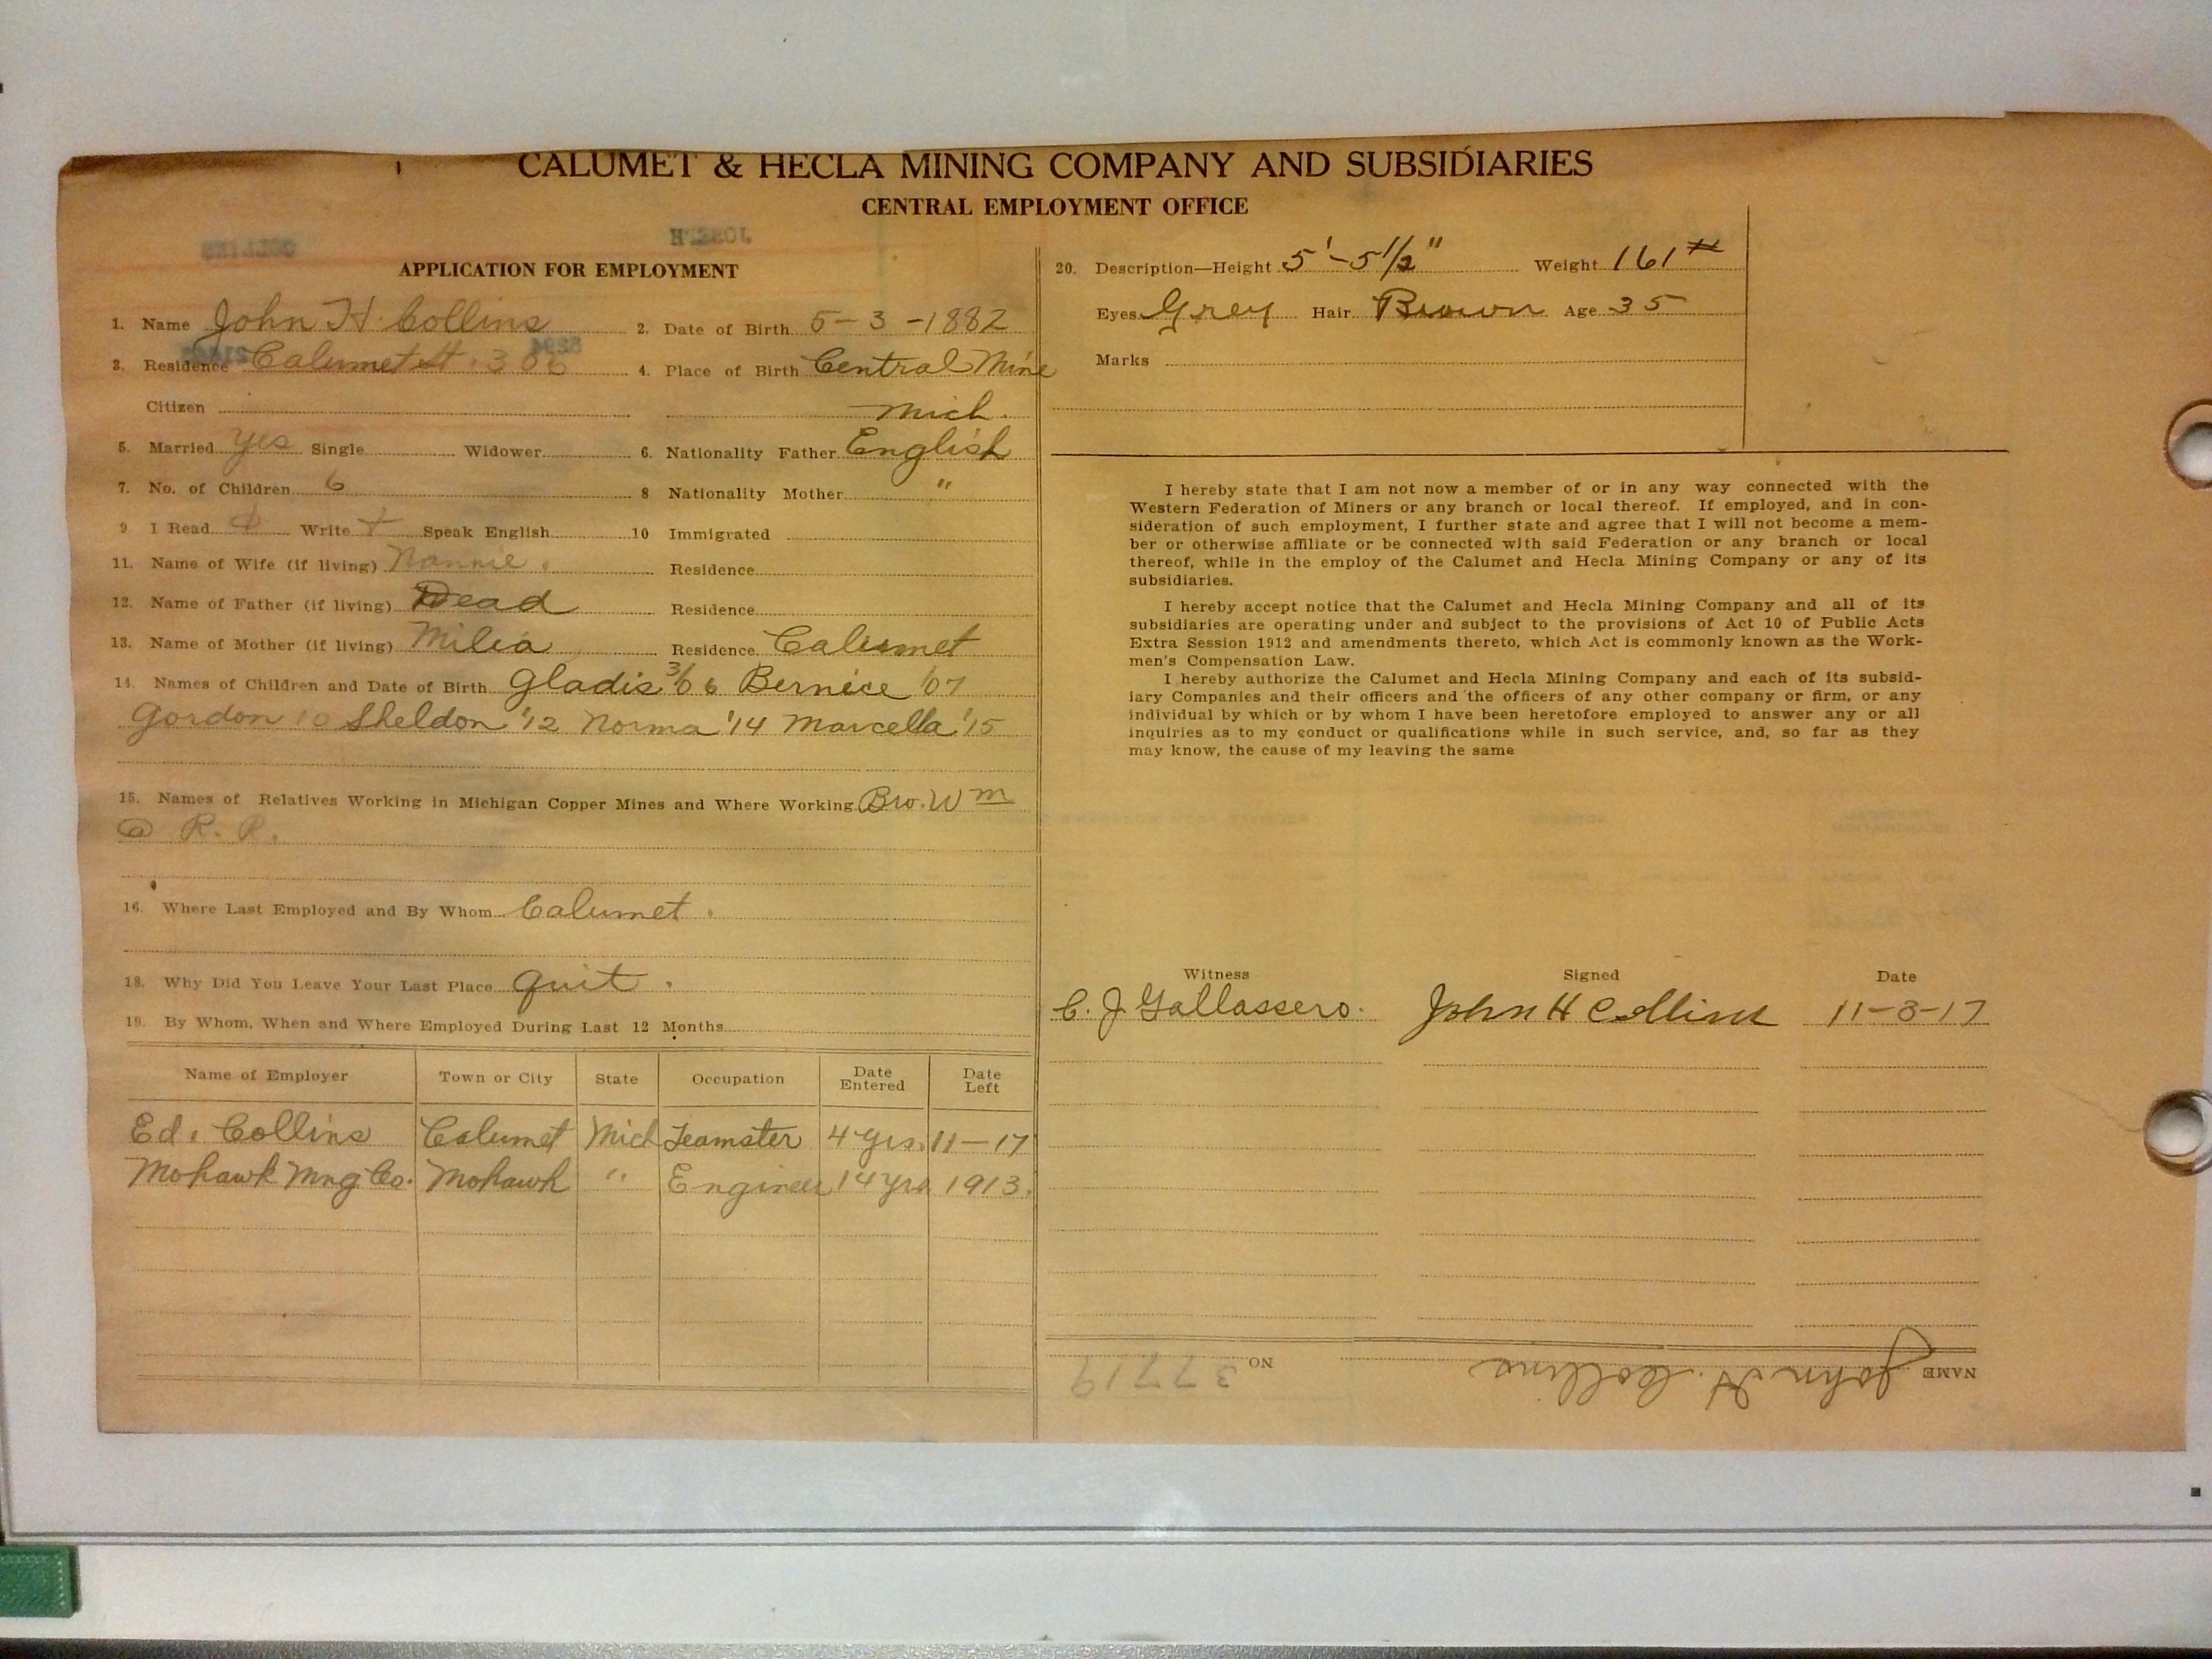 CALUMET & HECLA MINING COMPANY AND SUBSIDIARIES
CENTRAL EMPLOYMENT OFFICE
JOSEPH
COLLINS
APPLICATION FOR EMPLOYMENT
1. Name John H. Collins 2. Date of Birth 5-3-1882
3. Residence Calumet St. 306 4. Place of Birth Central Mine
Citizen Mich.
5. Married yes Single Widower 6. Nationality Father English
7. No. of Children 6 8 Nationality Mother "
9. I Read Write Speak English 10 Immigrated
11. Name of Wife (if living) Nannie. Residence
12. Name of Father (if living) Dead Residence
13. Name of Mother (if living) Milia Residence Calumet
14. Names of Children and Date of Birth Gladis 3/06 Bernice '07
Gordon 10 Sheldon '12 Norma '14 Marcella '15
15. Names of Relatives Working in Michigan Copper Mines and Where Working Bro. Wm
@ R. R.
16. Where Last Employed and By Whom Calumet.
18. Why Did You Leave Your Last Place quit.
19. By Whom, When and Where Employed During Last 12 Months
Name of Employer Town or City State Occupation Date Entered Date Left
Ed. Collins Calumet Mich Teamster 4 yrs. 11-17
Mohawk Mng Co. Mohawk " Engineer 14 yrs 1913.
20. Description—Height 5'-5 1/2" Weight 161#
Eyes Grey Hair Brown Age 35
Marks
I hereby state that I am not now a member of or in any way connected with the
Western Federation of Miners or any branch or local thereof. If employed, and in con-
sideration of such employment, I further state and agree that I will not become a mem-
ber or otherwise affiliate or be connected with said Federation or any branch or local
thereof, while in the employ of the Calumet and Hecla Mining Company or any of its
subsidiaries.
I hereby accept notice that the Calumet and Hecla Mining Company and all of its
subsidiaries are operating under and subject to the provisions of Act 10 of Public Acts
Extra Session 1912 and amendments thereto, which Act is commonly known as the Work-
men's Compensation Law.
I hereby authorize the Calumet and Hecla Mining Company and each of its subsid-
iary Companies and their officers and the officers of any other company or firm, or any
individual by which or by whom I have been heretofore employed to answer any or all
inquiries as to my conduct or qualifications while in such service, and, so far as they
may know, the cause of my leaving the same
Witness Signed Date
C. J. Gallassero. John H Collins 11-3-17
NAME John H. Collins NO 37719